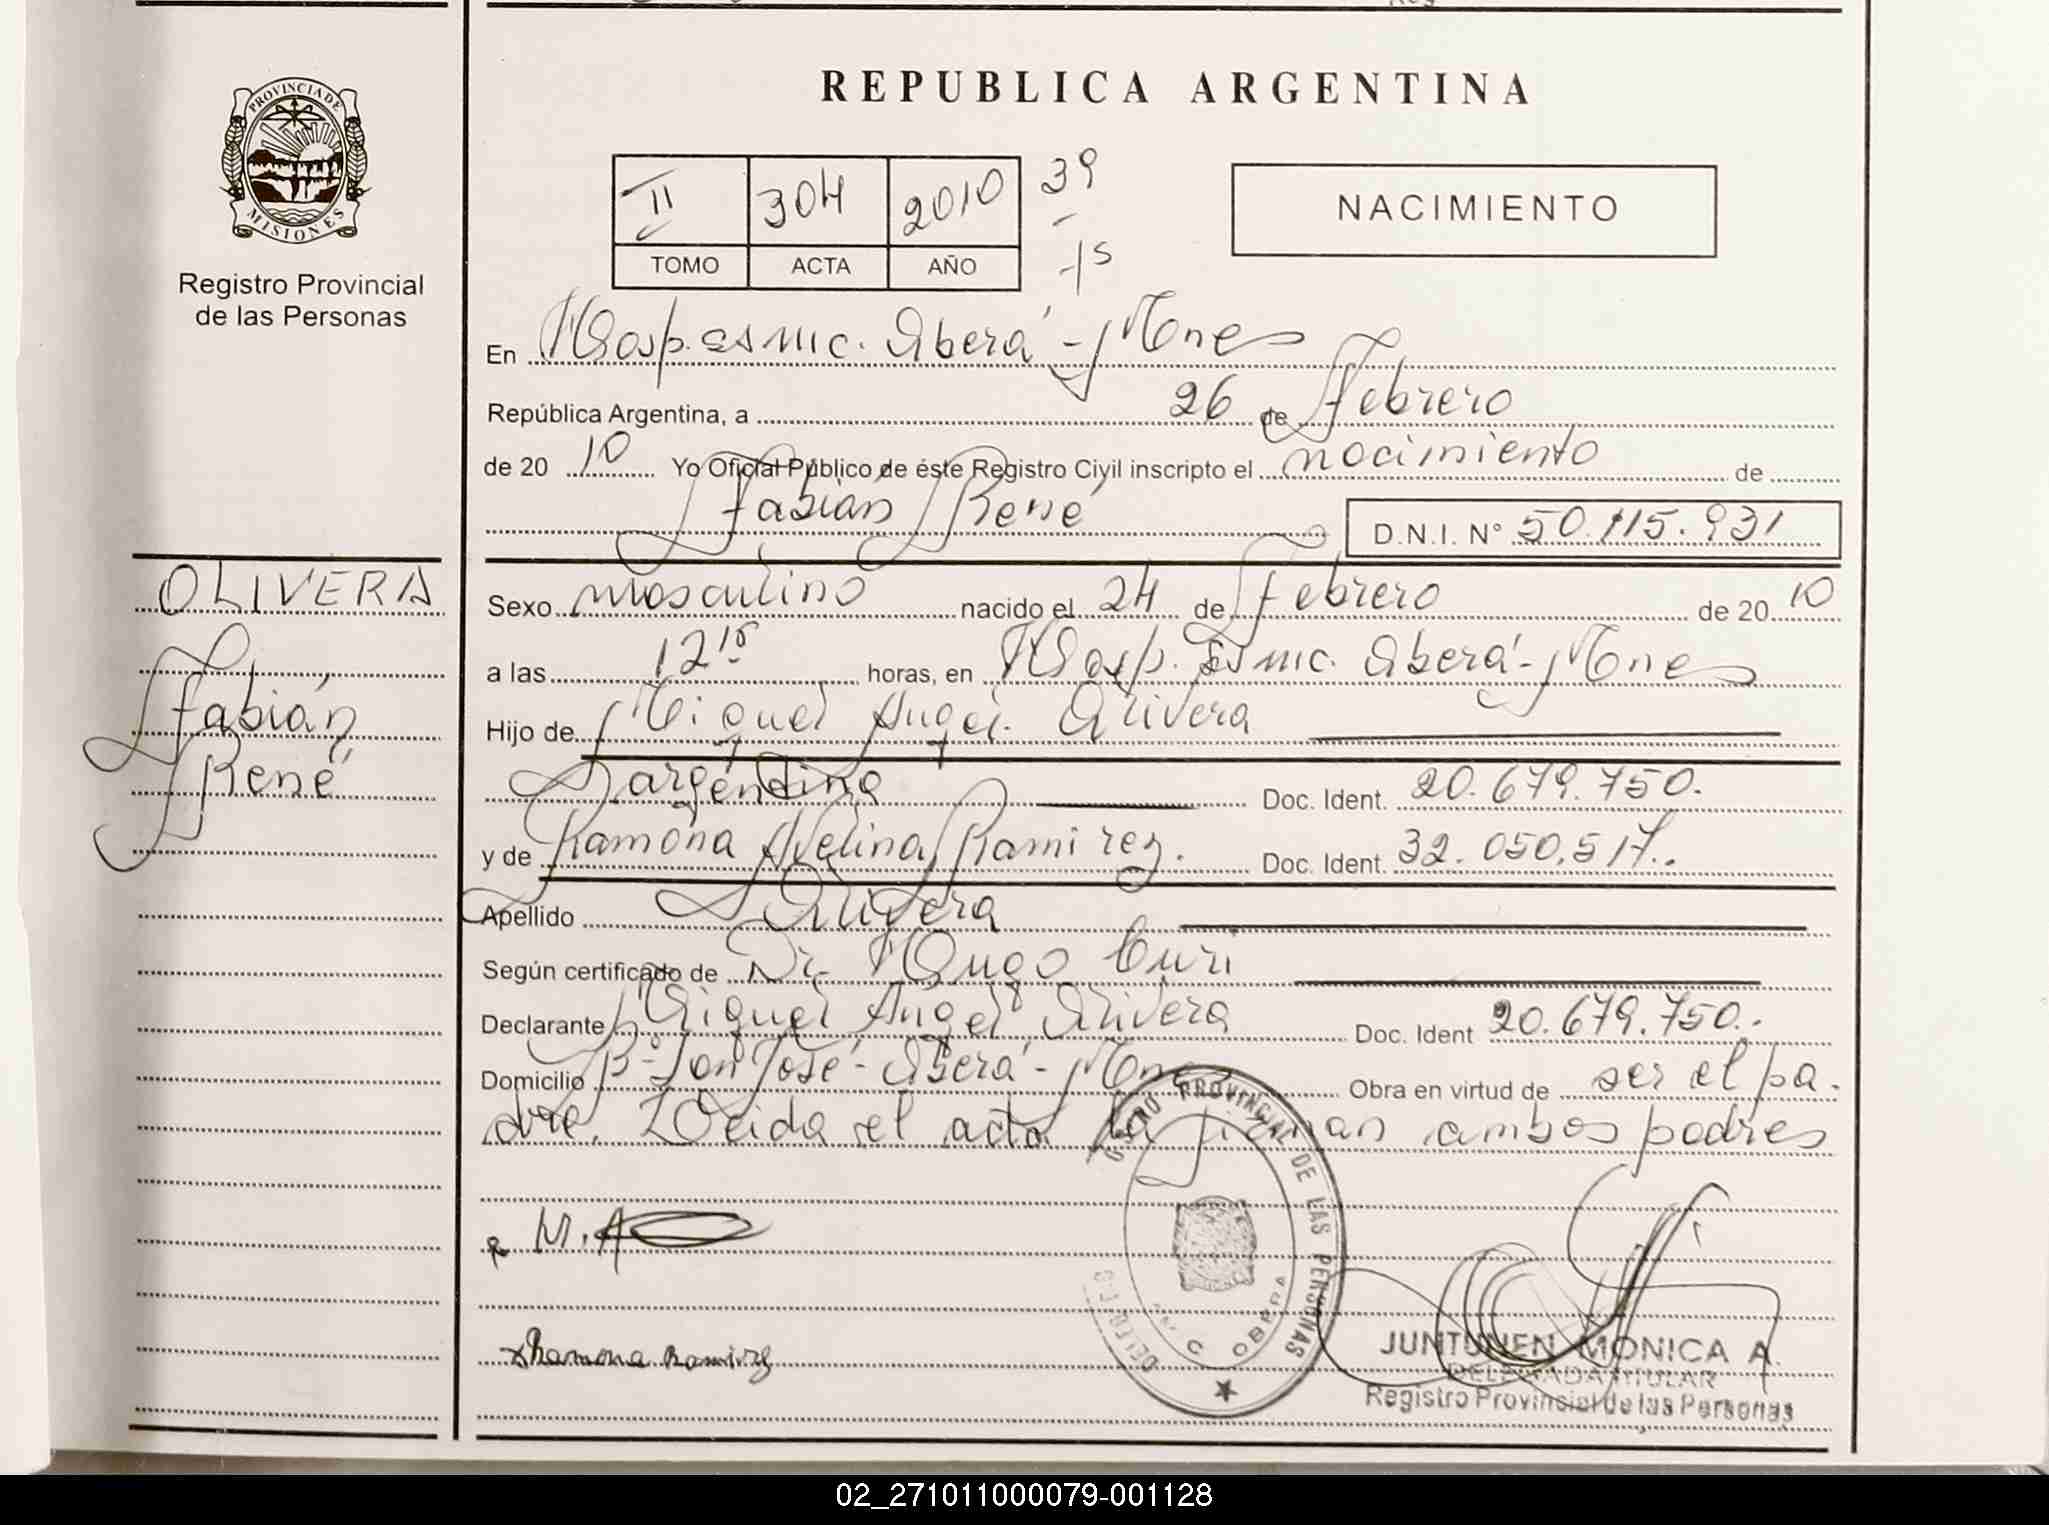 PROVINCIA DE
MISIONES
Registro Provincial
de las Personas
REPUBLICA ARGENTINA
II 304 2010 39
TOMO ACTA AÑO 15
NACIMIENTO
En Hosp. Esmic. Oberá - Mnes
República Argentina, a 26 de Febrero
de 20 10 Yo Oficial Público de éste Registro Civil inscripto el nacimiento de
Fabián René D.N.I. N° 50.115.931
OLIVERA
Fabián
René
Sexo masculino nacido el 24 de Febrero de 20 10
a las 12 15 horas, en Hosp. Esmic. Oberá - Mnes
Hijo de Miguel Angel Olivera
argentina Doc. Ident. 20.679.750.
y de Ramona Avelina Ramirez. Doc. Ident. 32.050.517.
Apellido Olivera
Según certificado de Dr. Hugo Curi
Declarante Miguel Angel Olivera Doc. Ident 20.679.750.
Domicilio B° San José - Oberá - Mnes Obra en virtud de ser el pa-
dre. Leida el acta la firman ambos padres
M. A
Ramona Ramirez
PROVINCIAL DE LAS PERSONAS
OBERA
JUNTUNEN MONICA A.
DELEGADA TITULAR
Registro Provincial de las Personas
02_271011000079-001128